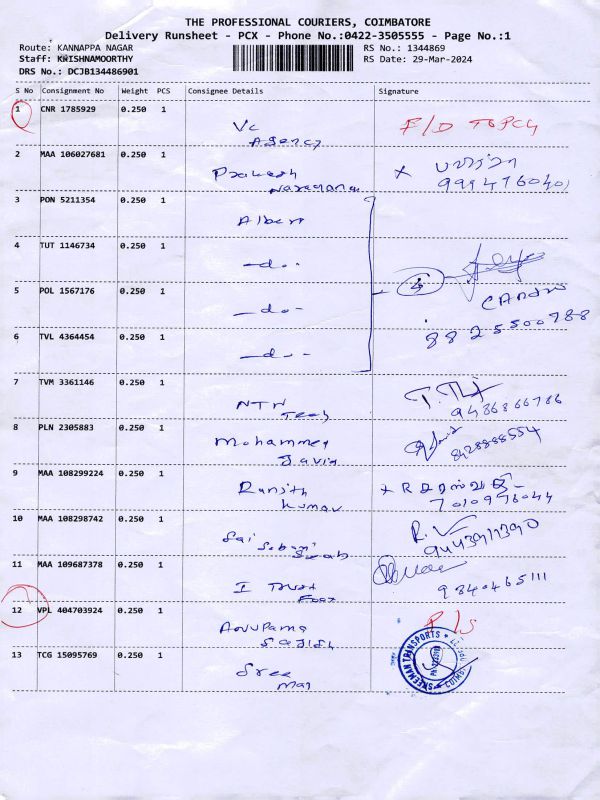 THE PROFESSIONAL COURIERS, COIMBATORE
Delivery Runsheet - PCX - Phone No.:0422-3505555 - Page No.:1
Route: KANNAPPA NAGAR
RS No.: 1344869
Staff: KRISHNAMOORTHY
RS Date: 29-Mar-2024
DRS No.: DCJB134486901
S No Consignment No Weight PCS Consignee Details Signature
1 CNR 1785929 0.250 1
Vc
Agency
2 MAA 106027681 0.250 1
Prakash
3 PON 5211354 0.250 1
Albert
4 TUT 1146734 0.250 1
-do-
5 POL 1567176 0.250 1
-do-
8825500788
6 TVL 4364454 0.250 1
-do-
7 TVM 3361146 0.250 1
NTH
Tech
9486866786
8 PLN 2305883 0.250 1
Mohammed
Javid
8428888554
9 MAA 108299224 0.250 1
Ranjith
Kumar
7010976044
10 MAA 108298742 0.250 1
Sai
11 MAA 109687378 0.250 1
I Trust
9840465111
12 VPL 404703924 0.250 1
Anupama
13 TCG 15095769 0.250 1
Sree
SREEMAN TRANSPORTS